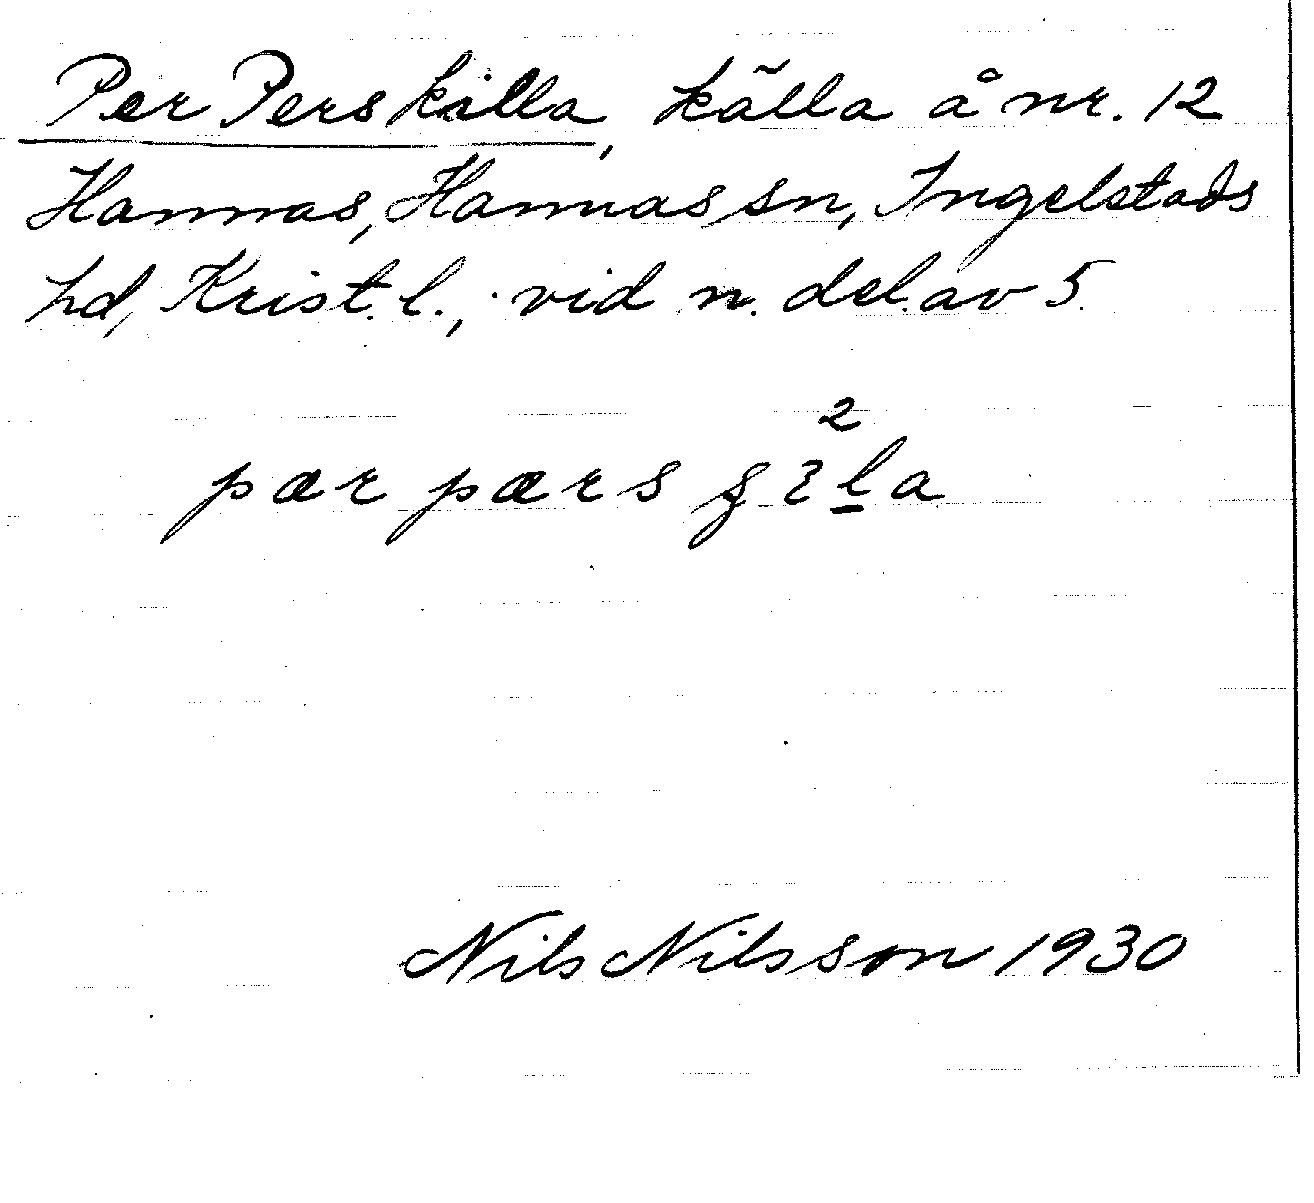 Per Perskilla, källa å nr. 12
Hannas, Hannas sn, Ingelstads
hd, Krist. l., vid n. del. av 5.
2
pær pærs
Nils Nilsson 1930